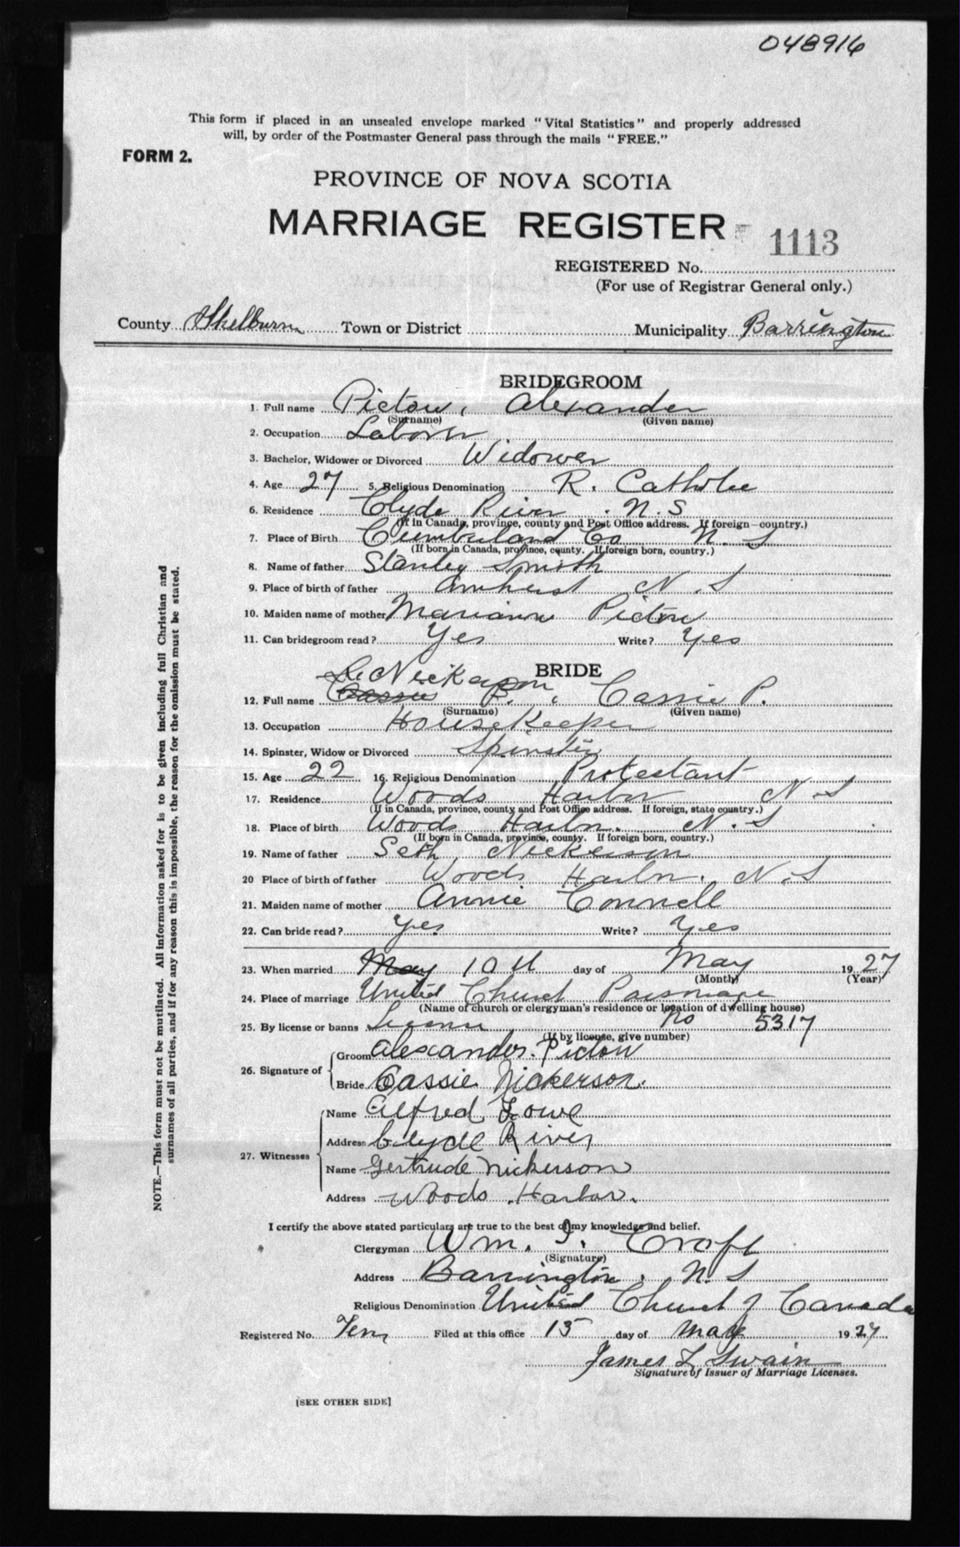 048916
This form if placed in an unsealed envelope marked "Vital Statistics" and properly addressed
will, by order of the Postmaster General pass through the mails "FREE."
FORM 2.
PROVINCE OF NOVA SCOTIA
MARRIAGE REGISTER
1113
REGISTERED No.
(For use of Registrar General only.)
County Shelburne Town or District Municipality Barrington
BRIDEGROOM
1. Full name Pictou, Alexander
(Surname) (Given name)
2. Occupation Laborer
3. Bachelor, Widower or Divorced Widower
4. Age 27 5. Religious Denomination R. Catholic
6. Residence Clyde River . N. S
(If in Canada, province, county and Post Office address. If foreign—country.)
7. Place of Birth Cumberland Co N. S
(If born in Canada, province, county. If foreign born, country.)
8. Name of father Stanley Smith
9. Place of birth of father Amherst N S
10. Maiden name of mother Pictou
11. Can bridegroom read? Yes Write? Yes
BRIDE
Nickerson
12. Full name Cassie P. , Cassie P.
(Surname) (Given name)
13. Occupation Housekeeper
14. Spinster, Widow or Divorced Spinster
15. Age 22 16. Religious Denomination Protestant
17. Residence Woods Harbor N S
(If in Canada, province, county and Post Office address. If foreign, state country.)
18. Place of birth Woods Harbor. N. S
(If born in Canada, province, county. If foreign born, country.)
19. Name of father Seth Nickerson
20 Place of birth of father Woods Harbor. N. S
21. Maiden name of mother Annie Connell
22. Can bride read? Yes Write? Yes
23. When married May 10th day of May 1927
(Month) (Year)
24. Place of marriage United Church Parsonage
(Name of church or clergyman's residence or location of dwelling house)
25. By license or banns License No 5317
(If by license, give number)
26. Signature of
Groom Alexander. Pictou
Bride Cassie Nickerson.
27. Witnesses
Name Alfred Lowe
Address Clyde River
Name Gertrude Nickerson
Address Woods Harbor.
I certify the above stated particulars are true to the best of my knowledge and belief.
Clergyman Wm. I. Croft
(Signature)
Address Barrington. N. S
Religious Denomination United Church of Canada
Registered No. Ten Filed at this office 15 day of May 1927
James L Swain
Signature of Issuer of Marriage Licenses.
[SEE OTHER SIDE]
NOTE.—This form must not be mutilated. All information asked for is to be given including full Christian and
surnames of all parties, and if for any reason this is impossible, the reason for the omission must be stated.